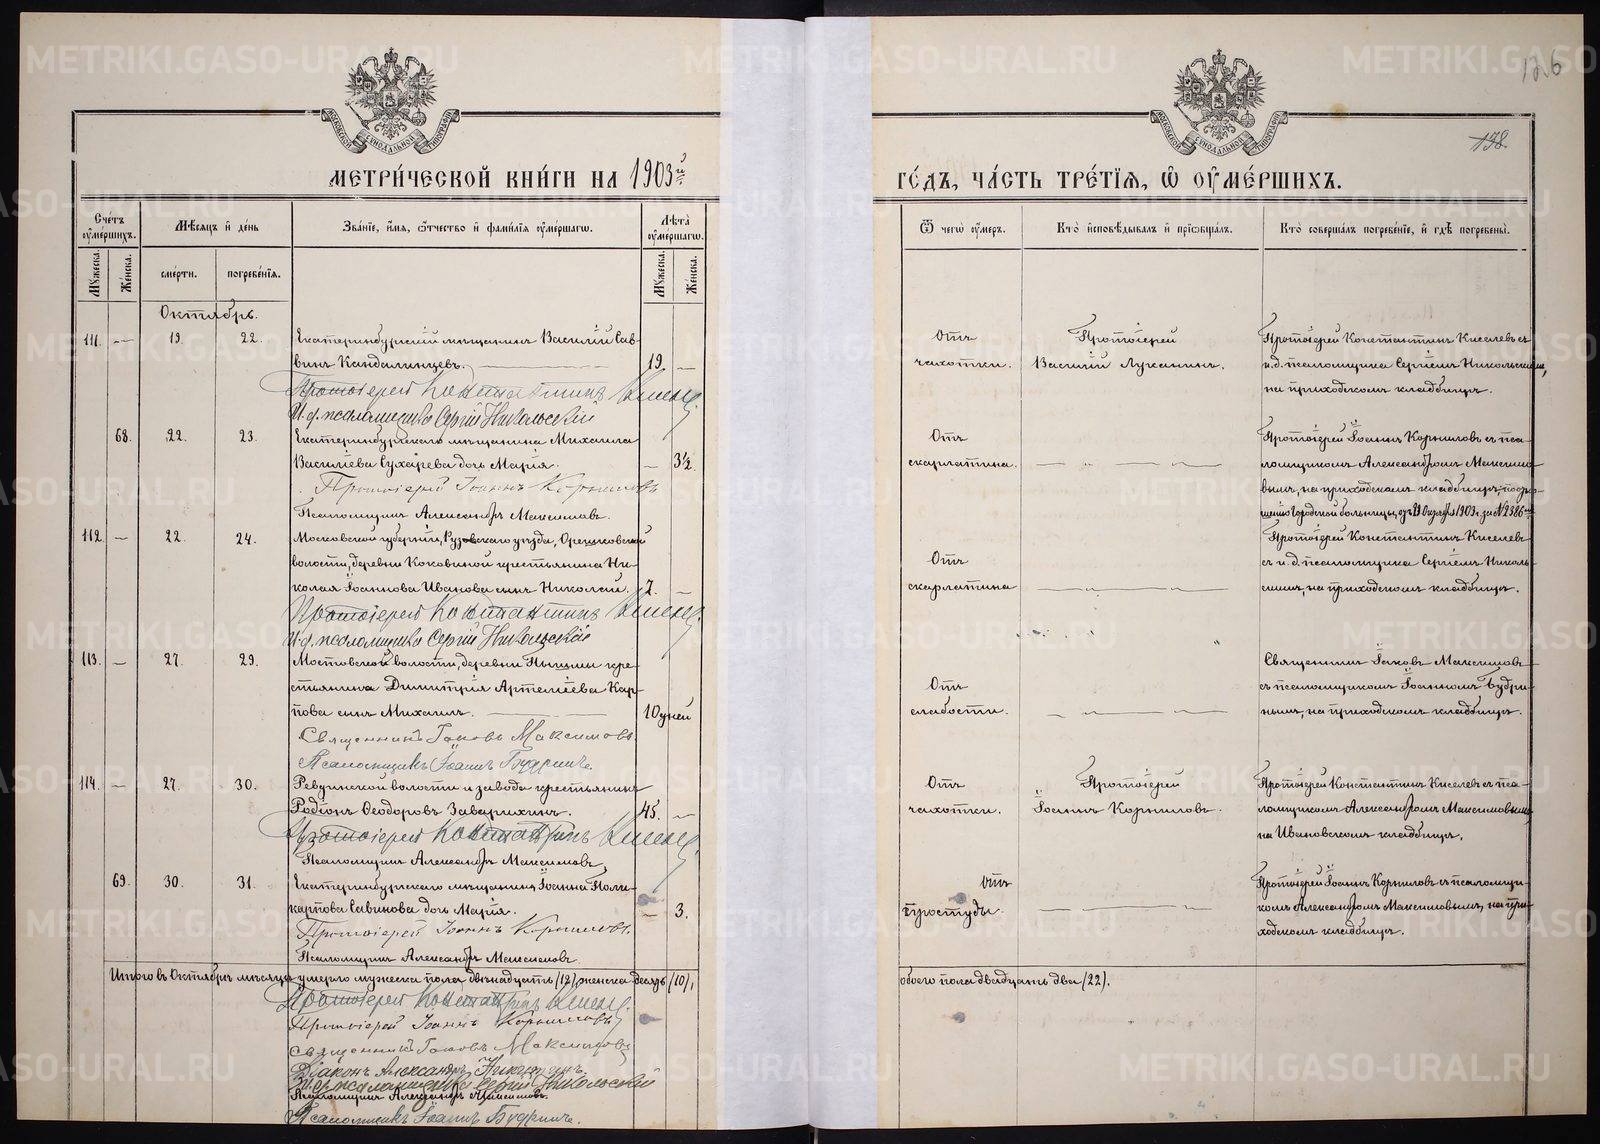 126
178.
МЕТРИ́ЧЕСКОЙ КНИ́ГИ НА 1903й
ГО́ДЪ, ЧА́СТЬ ТРЕ́ТІЯ, Ѡ҆ ОУ҆МЕ́РШИХЪ.
Сче́тъ оу҆ме́ршихъ.
Мѣ́сяцъ и҆ де́нь
Зва́нїе, и҆́мя, ѻ҆́тчество и҆ фами́лїя оу҆ме́ршагѡ.
Лѣ́та оу҆ме́ршагѡ.
Ѿ чегѡ̀ оу҆́меръ.
Кто̀ и҆сповѣ́дывалъ и҆ прїѻбща́лъ.
Кто̀ соверша́лъ погребе́нїе, и҆ гдѣ̀ погребены̀.
Мꙋ́жеска.
Же́нска.
сме́рти.
погребе́нїя.
Мꙋ́жеска.
Же́нска.
Октябрь.
111. — 19. 22. Екатеринбургскій мѣщанинъ Василій Сав-
винъ Кандалинцевъ. 19. —
Протоіерей Константинъ Киселевъ
И. д. псаломщика Сергій Никольскій
Отъ
чахотки.
Протоіерей
Василій Луканинъ.
Протоіерей Константинъ Киселевъ съ
и. д. псаломщика Сергіемъ Никольскимъ,
на приходскомъ кладбищѣ.
68. 22. 23. Екатеринбургскаго мѣщанина Михаила
Василіева Сухарева дочь Марія. — 3½.
Протоіерей Іоаннъ Корниловъ
Псаломщикъ Александръ Максимовъ.
Отъ
скарлатина.
Протоіерей Іоаннъ Корниловъ съ пса-
ломщикомъ Александромъ Максимо-
вымъ, на приходскомъ кладбищѣ,
городской больницы, отъ 23 Октября 1903 г. за № 2386
112. — 22. 24. Московской губерніи, Рузовскаго уѣзда, Орешковской
волости, деревни Коковиной крестьянина Ни-
колая Іоаннова Иванова сынъ Николай. 7. —
Протоіерей Константинъ Киселевъ
И. д. псаломщика Сергій Никольскій
Отъ
скарлатина
Протоіерей Константинъ Киселевъ
съ и. д. псаломщика Сергіемъ Николь-
скимъ, на приходскомъ кладбищѣ.
113. — 27. 29. Мостовской волости, деревни Пышмы кре-
стьянина Димитрія Артеміева Кар-
пова сынъ Михаилъ. 10 дней
Священникъ Іаковъ Максимовъ.
Псаломщикъ Іоаннъ Будринъ.
Отъ
слабости.
Священникъ Іаковъ Максимовъ
съ псаломщикомъ Іоанномъ Будри-
нымъ, на приходскомъ кладбищѣ.
114. — 27. 30. Ревдинской волости и завода крестьянинъ
Родіонъ Ѳеодоровъ Заварихинъ. 45. —
Протоіерей Константинъ Киселевъ
Псаломщикъ Александръ Максимовъ,
Отъ
чахотки.
Протоіерей
Іоаннъ Корниловъ.
Протоіерей Константинъ Киселевъ съ пса-
ломщикомъ Александромъ Максимовымъ,
на Ивановскомъ кладбищѣ.
69. 30. 31. Екатеринбургскаго мѣщанина Іоанна Поли-
карпова Савинова дочь Марія. — 3.
Протоіерей Іоаннъ Корниловъ.
Псаломщикъ Александръ Максимовъ.
Отъ
простуды.
Протоіерей Іоаннъ Корниловъ съ псаломщи-
комъ Александромъ Максимовымъ, на при-
ходскомъ кладбищѣ.
Итого въ Октябрѣ мѣсяцѣ умерло мужеска пола двѣнадцать (12), женска десять (10),
обоего пола двадцать два (22).
Протоіерей Константинъ Киселевъ.
Протоіерей Іоаннъ Корниловъ
Священникъ Іаковъ Максимовъ
Діаконъ Александръ Никитинъ.
И. д. псаломщика Сергій Никольскій
Псаломщикъ Александръ Максимовъ.
Псаломщикъ Іоаннъ Будринъ.
METRIKI.GASO-URAL.RU